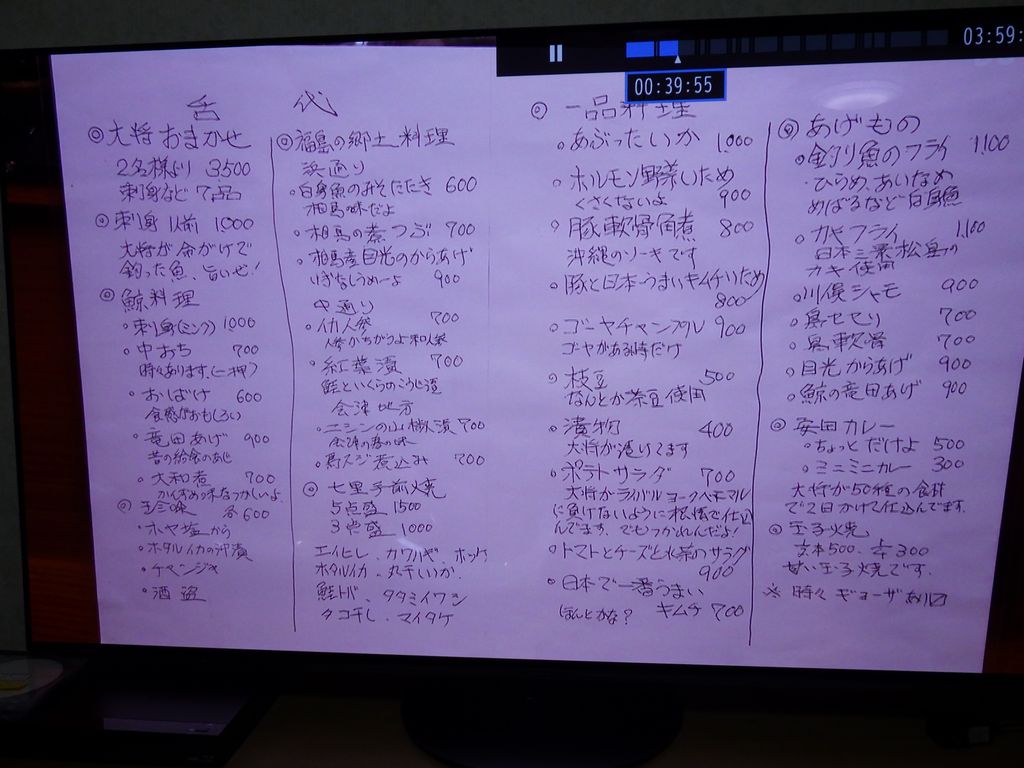 03:59:
00:39:55
舌 代
◎大将おまかせ
2名様より 3,500
刺身など 7品
◎刺身 1人前 1000
大将が命がけで
釣った魚、旨いぜ!
◎鯨料理
・刺身(ミンク) 1000
・中おち 700
時々あります。(一押)
・おばけ 600
食感がおもしろい
・竜田あげ 900
昔の給食のあじ
・大和煮 700
かんずめの味なつかしいよ
◎珍味 各600
・ホヤ塩から
・ホタルイカの沖漬
・チャンジャ
・酒盗
◎福島の郷土料理
浜通り
・白身魚のみそたたき 600
相馬の味だよ
・相馬の煮つぶ 700
・相馬産目光のからあげ
いぎなしうめーよ 900
中通り
・イカ人参 700
人参がちがうよ和人参
・紅葉漬 700
鮭といくらのこうじ漬
会津地方
・ニシンの山椒漬 700
会津の春の味
・馬スジ煮込み 700
◎七里手前焼
5点盛 1500
3点盛 1000
エイヒレ、カワハギ、ホッケ
ホタルイカ、丸干しいか、
鮭トバ、タタミイワシ
タコ干し、マイタケ
◎一品料理
・あぶったいか 1,000
・ホルモン野菜いため
くさくないよ 900
・豚軟骨角煮 800
沖縄のソーキです
・豚と日本一うまいキムチいため
800
・ゴーヤチャンプル 900
ゴーヤがある時だけ
・枝豆 500
なんとか茶豆使用
・漬物 400
大将が漬けてます
・ポテトサラダ 700
大将がライバル ヨークベニマル
に負けないように根性で仕込
んでます。でもつかれんだよ!
・トマトとチーズと水菜のサラダ
900
・日本で一番うまい
ほんとかな? キムチ 700
◎あげもの
・釣り魚のフライ 1,100
・ひらめ、あいなめ
めばるなど白身魚
・カキフライ 1,100
日本三景松島の
カキ使用
・川俣シャモ 900
・鳥セセリ 700
・鳥軟骨 700
・目光からあげ 900
・鯨の竜田あげ 900
◎安田カレー
・ちょっとだけよ 500
・ミニミニカレー 300
大将が50種の食材
で2日かけて仕込んでます。
◎玉子焼
六本500、半300
甘い玉子焼です。
※時々ギョーザあり〼